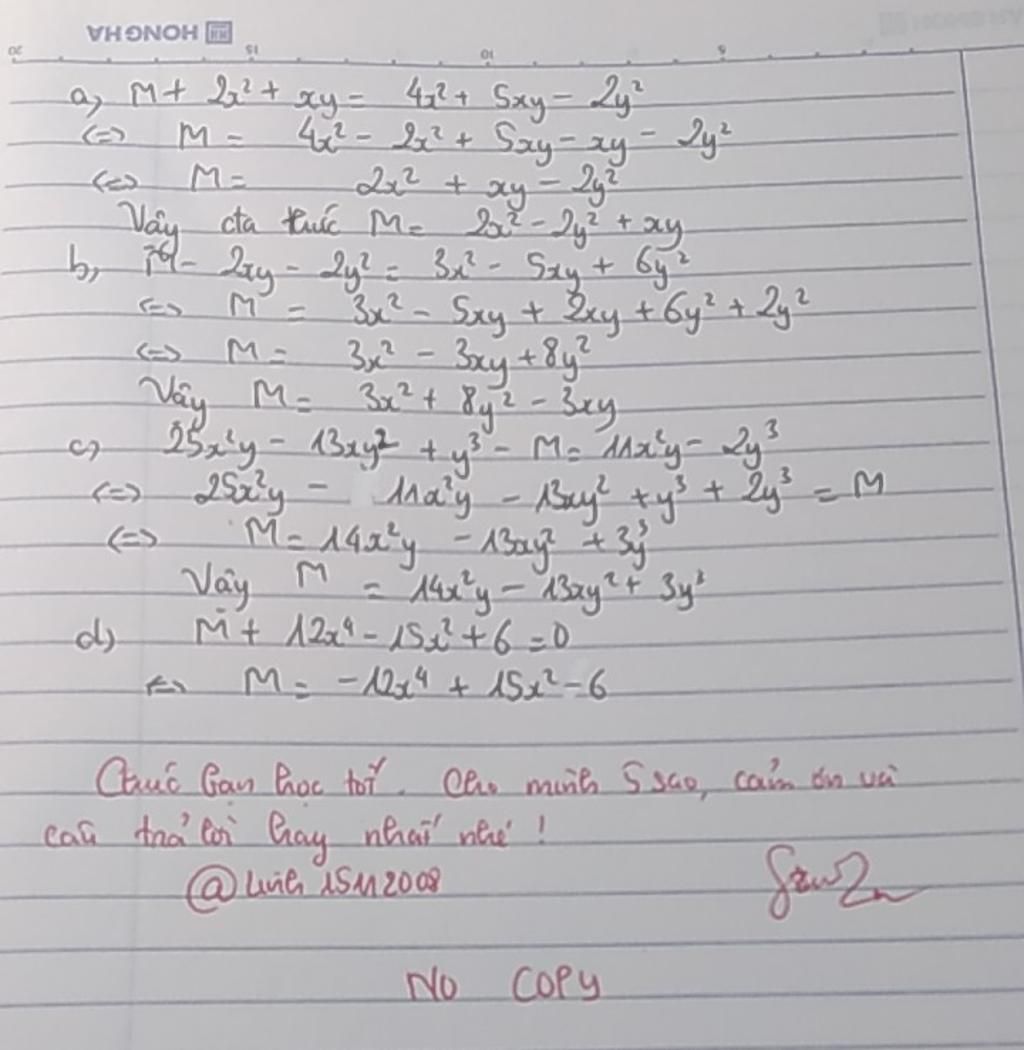 HONG HA
20 15 10 5
a, M + 2x² + xy = 4x² + 5xy - 2y²
<=> M = 4x² - 2x² + 5xy - xy - 2y²
<=> M = 2x² + xy - 2y²
Vậy đa thức M = 2x² - 2y² + xy
b, M - 2xy - 2y² = 3x² - 5xy + 6y²
<=> M = 3x² - 5xy + 2xy + 6y² + 2y²
<=> M = 3x² - 3xy + 8y²
Vậy M = 3x² + 8y² - 3xy
c, 25x²y - 13xy² + y³ - M = 11x²y - 2y³
<=> 25x²y - 11x²y - 13xy² + y³ + 2y³ = M
<=> M = 14x²y - 13xy² + 3y³
Vậy M = 14x²y - 13xy² + 3y³
d, M + 12x⁴ - 15x² + 6 = 0
<=> M = -12x⁴ + 15x² - 6
Chúc bạn học tốt. Cho mình 5 sao, cảm ơn và
câu trả lời hay nhất nhé !
@ Linh 15112008
NO COPY